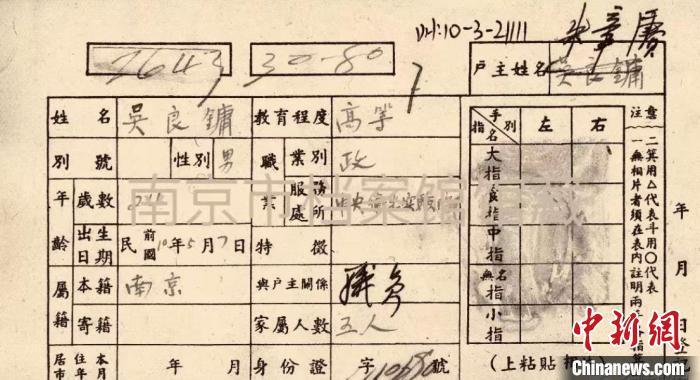 叶:10-3-21111
7643
30-80
戶主姓名 吳良鏞
姓名 吳良鏞 教育程度 高等
別號 性別 男 職業 業別 政
服務處所
年齡 歲數
出生日期 民國前 10年5月7日 特徵
屬籍 本籍 南京 與戶主關係
寄籍 家屬人數 五人
居住本市年月 年 月 身份證 字 號
手別 指名 左 右
大指
食指
中指
無名指
小指
(上粘貼
注意
一無相片者須在表內註明兩手各指箕
二箕用△代表斗用○代表
年 月 日登記
南京市档案馆馆藏
中新网
Chinanews.com